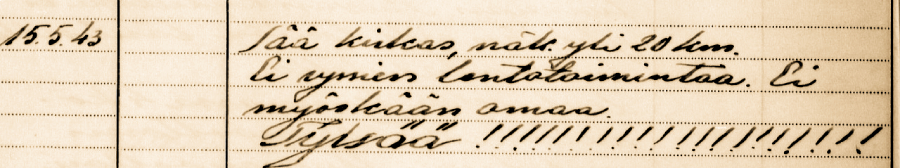 15.5.43 Sää kirkas, näk. yli 20 km.
Ei vymien lentotoimintaa. Ei
myöskään omaa.
Tylsää !!!!!!!!!!!!!!!!!!!